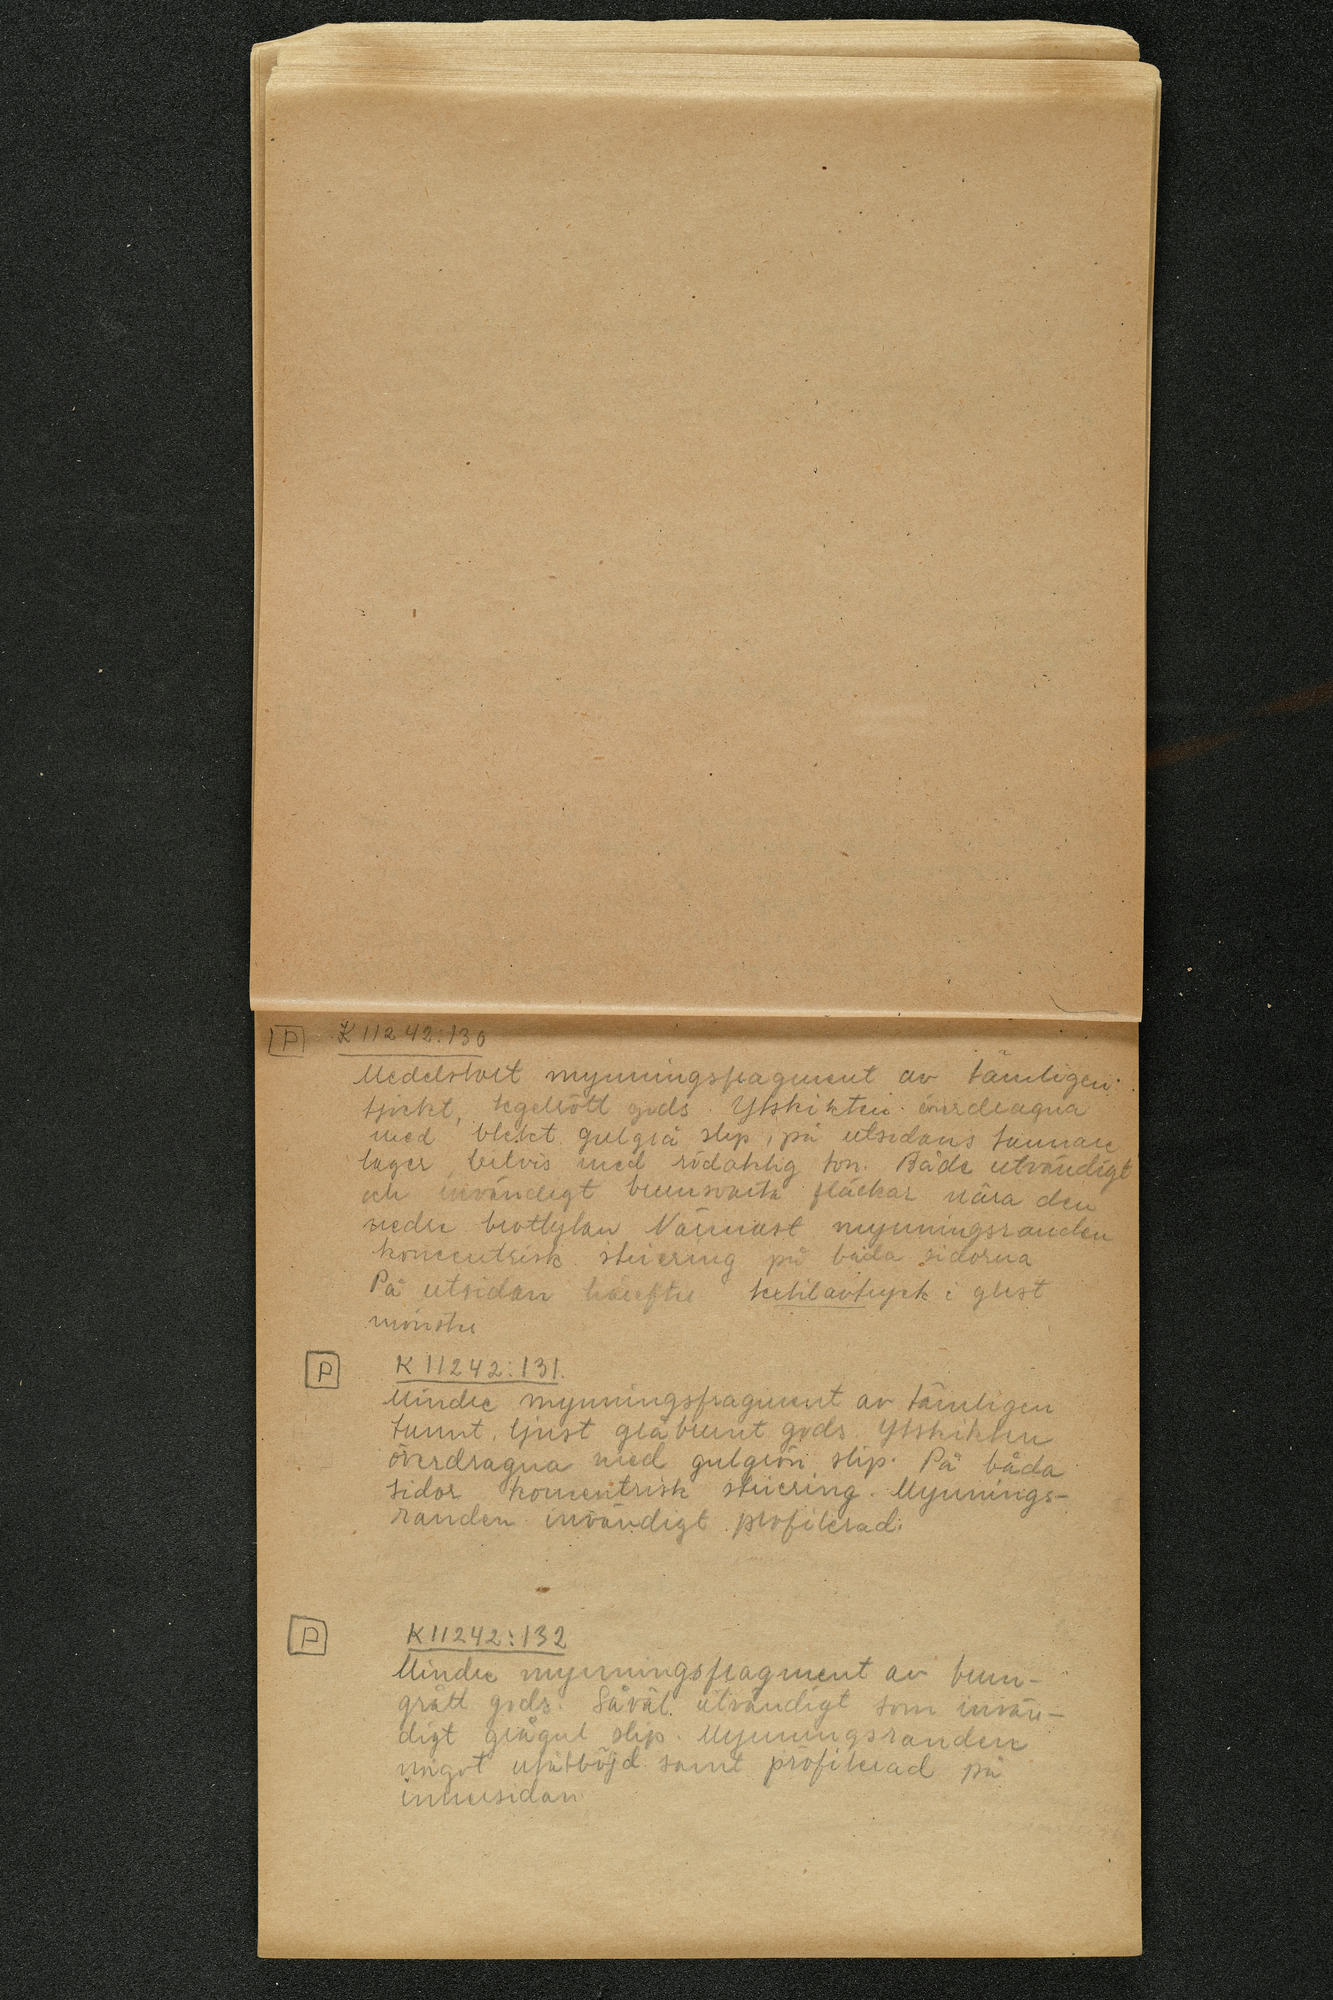 P K 11242:130
Medelstort mynningsfragment av tämligen
tjockt, tegelrött gods. Ytskikten överdragna
med blekt gulgrå slip, på utsidans tunnare
lager bitvis med rödaktig ton. Både utvändigt
och invändigt brunsvarta fläckar nära den
nedre brottytan Närmast mynningsranden
koncentrisk striering på båda sidorna
På utsidan textilavtryck i glest
mönster
P K 11242:131.
Mindre mynningsfragment av tämligen
tunnt, ljust gråbrunt gods. Ytskikten
överdragna med gulgrön slip. På båda
sidor koncentrisk striering. Mynnings-
randen invändigt profilerad.
P K 11242:132
Mindre mynningsfragment av brun-
grått gods. Såväl utvändigt som invän-
digt grågul slip. Mynningsranden
något utåtböjd samt profilerad på
innersidan